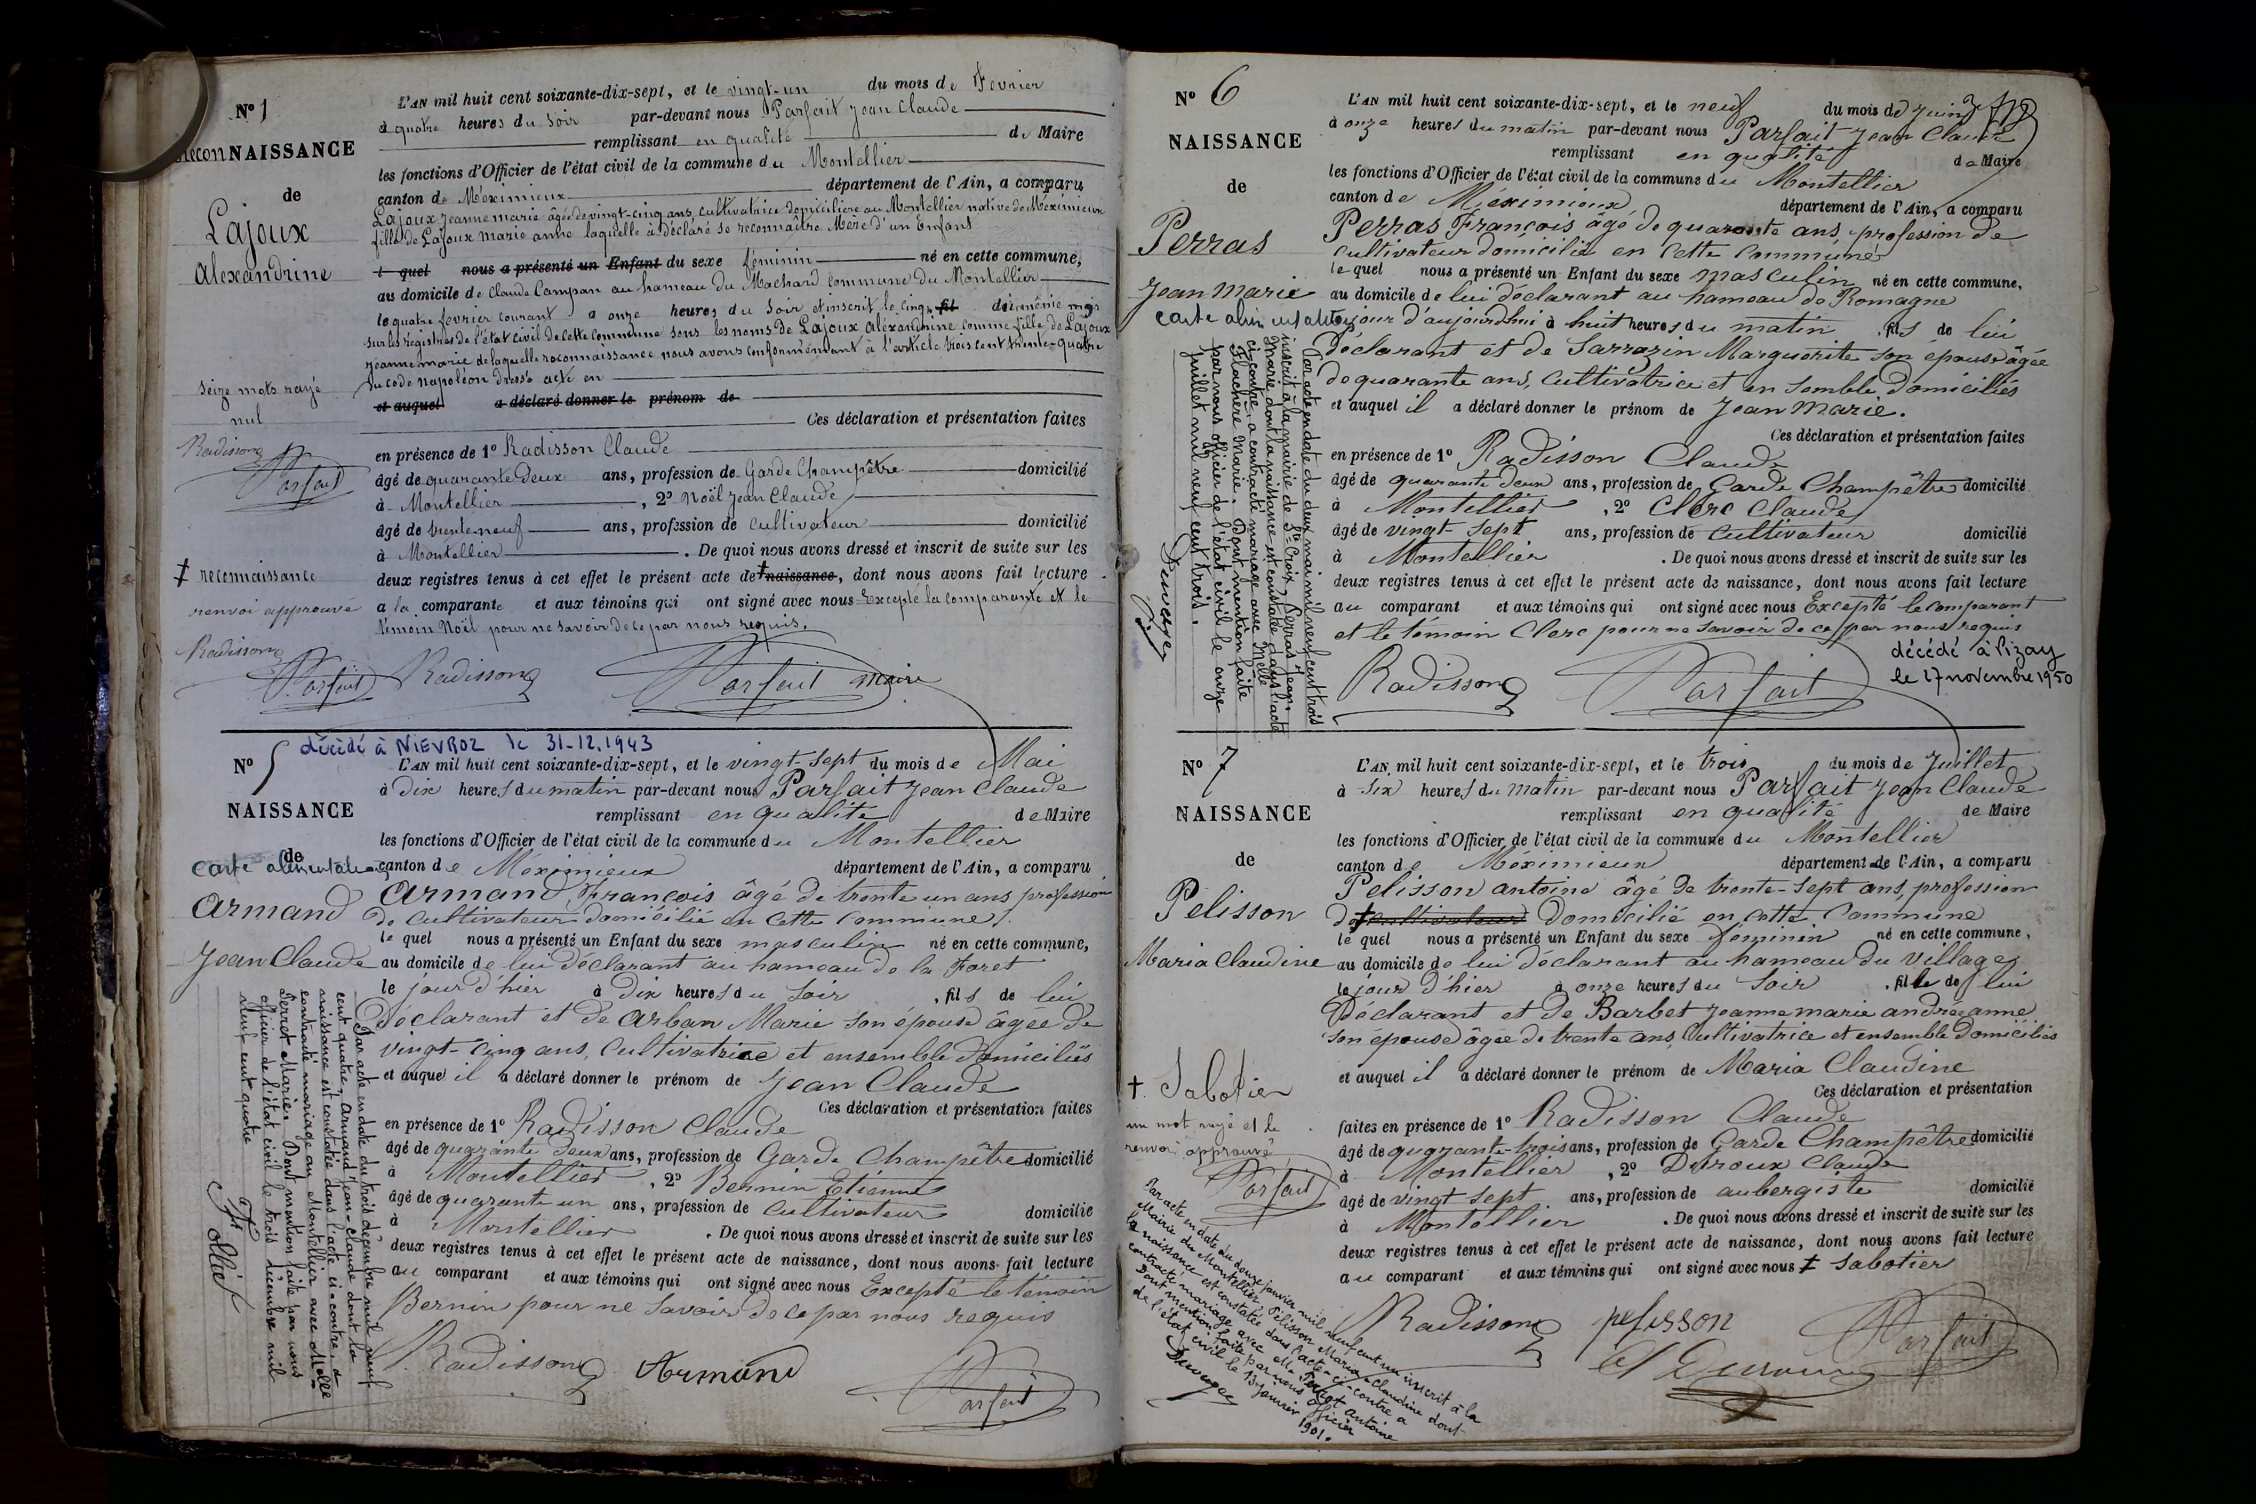 N° 1
ReconNAISSANCE
de
Lajoux
Alexandrine
L'AN mil huit cent soixante-dix-sept, et le vingt-un du mois de Fevrier
à quatre heures du Soir par-devant nous Parfait Jean Claude
remplissant en qualité de Maire
les fonctions d'Officier de l'état civil de la commune du Montellier
canton de Méximieux département de l'Ain, a comparu
Lajoux Jeanne marie âgée de vingt-cinq ans, cultivatrice domiciliée au Montellier native de Méximieux
fille de Lajoux Marie anne laquelle à déclaré se reconnaître Mère d'un Enfant
l quel nous a présenté un Enfant du sexe féminin né en cette commune,
au domicile de Claude Campan au hameau du Machard commune du Montellier
le quatre fevrier courant à onze heures du Soir et inscrit le cinq fil du même mois
sur les régistres de l'état civil de cette commune sous les noms de Lajoux Alexandrine comme fille de Lajoux
Jeanne marie de laquelle reconnaissance nous avons conformément à l'article trois cent trente-quatre
du code napoléon dressé acte en
et auquel a déclaré donner le prénom de
Ces déclaration et présentation faites
en présence de 1° Radisson Claude
âgé de quarante deux ans, profession de Garde Champêtre domicilié
à Montellier, 2° Noël Jean Claude
âgé de trente neuf ans, profession de Cultivateur domicilié
à Montellier. De quoi nous avons dressé et inscrit de suite sur les
deux registres tenus à cet effet le présent acte de ‡ naissance, dont nous avons fait lecture
a la comparante et aux témoins qui ont signé avec nous Excepté la comparante et le
témoin Noël pour ne savoir de ce par nous requis.
seize mots rayé
nul
Radisson
Parfait
‡ reconnaissance
renvoi approuvé
Radisson
Parfait
Radisson
Parfait maire
N° 5
décédé à NIEVROZ le 31-12.1943
NAISSANCE
de
carte alimentation
Armand
Jean Claude
L'AN mil huit cent soixante-dix-sept, et le vingt-sept du mois de Mai
à dix heures du matin par-devant nous Parfait Jean Claude
remplissant en qualité de Maire
les fonctions d'Officier de l'état civil de la commune du Montellier
canton de Méximieux département de l'Ain, a comparu
Armand, François âgé de trente un ans, profession
de Cultivateur domicilié en cette commune.
le quel nous a présenté un Enfant du sexe masculin né en cette commune,
au domicile de lui déclarant au hameau de la Foret
le jour d'hier à dix heures du soir, fils de lui
Déclarant et de Arban Marie son épouse âgée de
vingt-cinq ans, Cultivatrice et ensemble domiciliés
et auquel il a déclaré donner le prénom de Jean Claude
Ces déclaration et présentation faites
en présence de 1° Radisson Claude
âgé de quarante deux ans, profession de Garde Champêtre domicilié
à Montellier, 2° Bernin Etienne
âgé de quarante un ans, profession de Cultivateur domicilié
à Montellier. De quoi nous avons dressé et inscrit de suite sur les
deux registres tenus à cet effet le présent acte de naissance, dont nous avons fait lecture
au comparant et aux témoins qui ont signé avec nous Excepté le témoin
Bernin pour ne savoir de ce par nous requis
Radisson Armand Parfait
Par acte en date du trois décembre mil neuf
cent quatre, Armand Jean-Claude dont la
naissance est constatée dans l'acte ci-contre, a
contracté mariage au Montellier avec Melle
Perret Marie. Dont mention faite par nous
officier de l'état civil le trois décembre mil
neuf cent quatre
N° 6
NAISSANCE
de
Perras
Jean Marie
carte alimentation
L'AN mil huit cent soixante-dix-sept, et le neuf du mois de Juin
à onze heures du matin par-devant nous Parfait Jean Claude
remplissant en qualité de Maire
les fonctions d'Officier de l'état civil de la commune du Montellier
canton de Méximieux département de l'Ain, a comparu
Perras François âgé de quarante ans, profession de
cultivateur domicilié en cette commune
le quel nous a présenté un Enfant du sexe masculin né en cette commune,
au domicile de lui déclarant au hameau de Romagne
le jour d'aujourdhui à huit heures du matin, fils de lui
déclarant et de Sarrazin Marguerite son épouse âgée
de quarante ans, Cultivatrice et ensemble domiciliés
et auquel il a déclaré donner le prénom de Jean Marie.
Ces déclaration et présentation faites
en présence de 1° Radisson Claude
âgé de quarante deux ans, profession de Garde Champêtre domicilié
à Montellier, 2° Clerc Claude
âgé de vingt-sept ans, profession de Cultivateur domicilié
à Montellier. De quoi nous avons dressé et inscrit de suite sur les
deux registres tenus à cet effet le présent acte de naissance, dont nous avons fait lecture
au comparant et aux témoins qui ont signé avec nous Excepté le comparant
et le témoin Clerc pour ne savoir de ce par nous requis
décédé à Pizay
le 17 novembre 1950
Radisson Parfait
Par acte en date du deux mai mil neuf cent trois
inscrit à la mairie de Ste Croix, Perras Jean-
Marie dont la naissance est constatée dans l'acte
ci-contre, a contracté mariage avec Melle
Flachère Marie. Dont mention faite
par nous officier de l'état civil le onze
juillet mil neuf cent trois.
N° 7
NAISSANCE
de
Pelisson
Maria Claudine
L'AN mil huit cent soixante-dix-sept, et le trois du mois de Juillet
à six heures du matin par-devant nous Parfait Jean Claude
remplissant en qualité de Maire
les fonctions d'Officier de l'état civil de la commune du Montellier
canton de Méximieux département de l'Ain, a comparu
Pelisson Antoine âgé de trente-sept ans, profession
de ‡ cultivateur domicilié en cette commune
le quel nous a présenté un Enfant du sexe féminin né en cette commune,
au domicile de lui déclarant au hameau du village
le jour d'hier à onze heures du soir, fille de lui
Déclarant et de Barbet Jeanne marie andrée anne
son épouse âgée de trente ans, Cultivatrice et ensemble domiciliés
et auquel il a déclaré donner le prénom de Maria Claudine
Ces déclaration et présentation
faites en présence de 1° Radisson Claude
âgé de quarante-trois ans, profession de Garde Champêtre domicilié
à Montellier, 2° Duroux Claude
âgé de vingt sept ans, profession de aubergiste domicilié
à Montellier. De quoi nous avons dressé et inscrit de suite sur les
deux registres tenus à cet effet le présent acte de naissance, dont nous avons fait lecture
au comparant et aux témoins qui ont signé avec nous ‡ sabotier
‡. Sabotier
un mot rayé et le
renvoi approuvé
Parfait
Radisson pelisson Parfait
Duroux
Par acte en date du douze janvier mil neuf cent un inscrit à la
Mairie du Montellier Pelisson Maria-Claudine dont
la naissance est constatée dans l'acte-ci-contre a
contracté mariage avec Mr Perret Antoine
Dont mention faite par nous officier
de l'état civil le 13 janvier 1901.